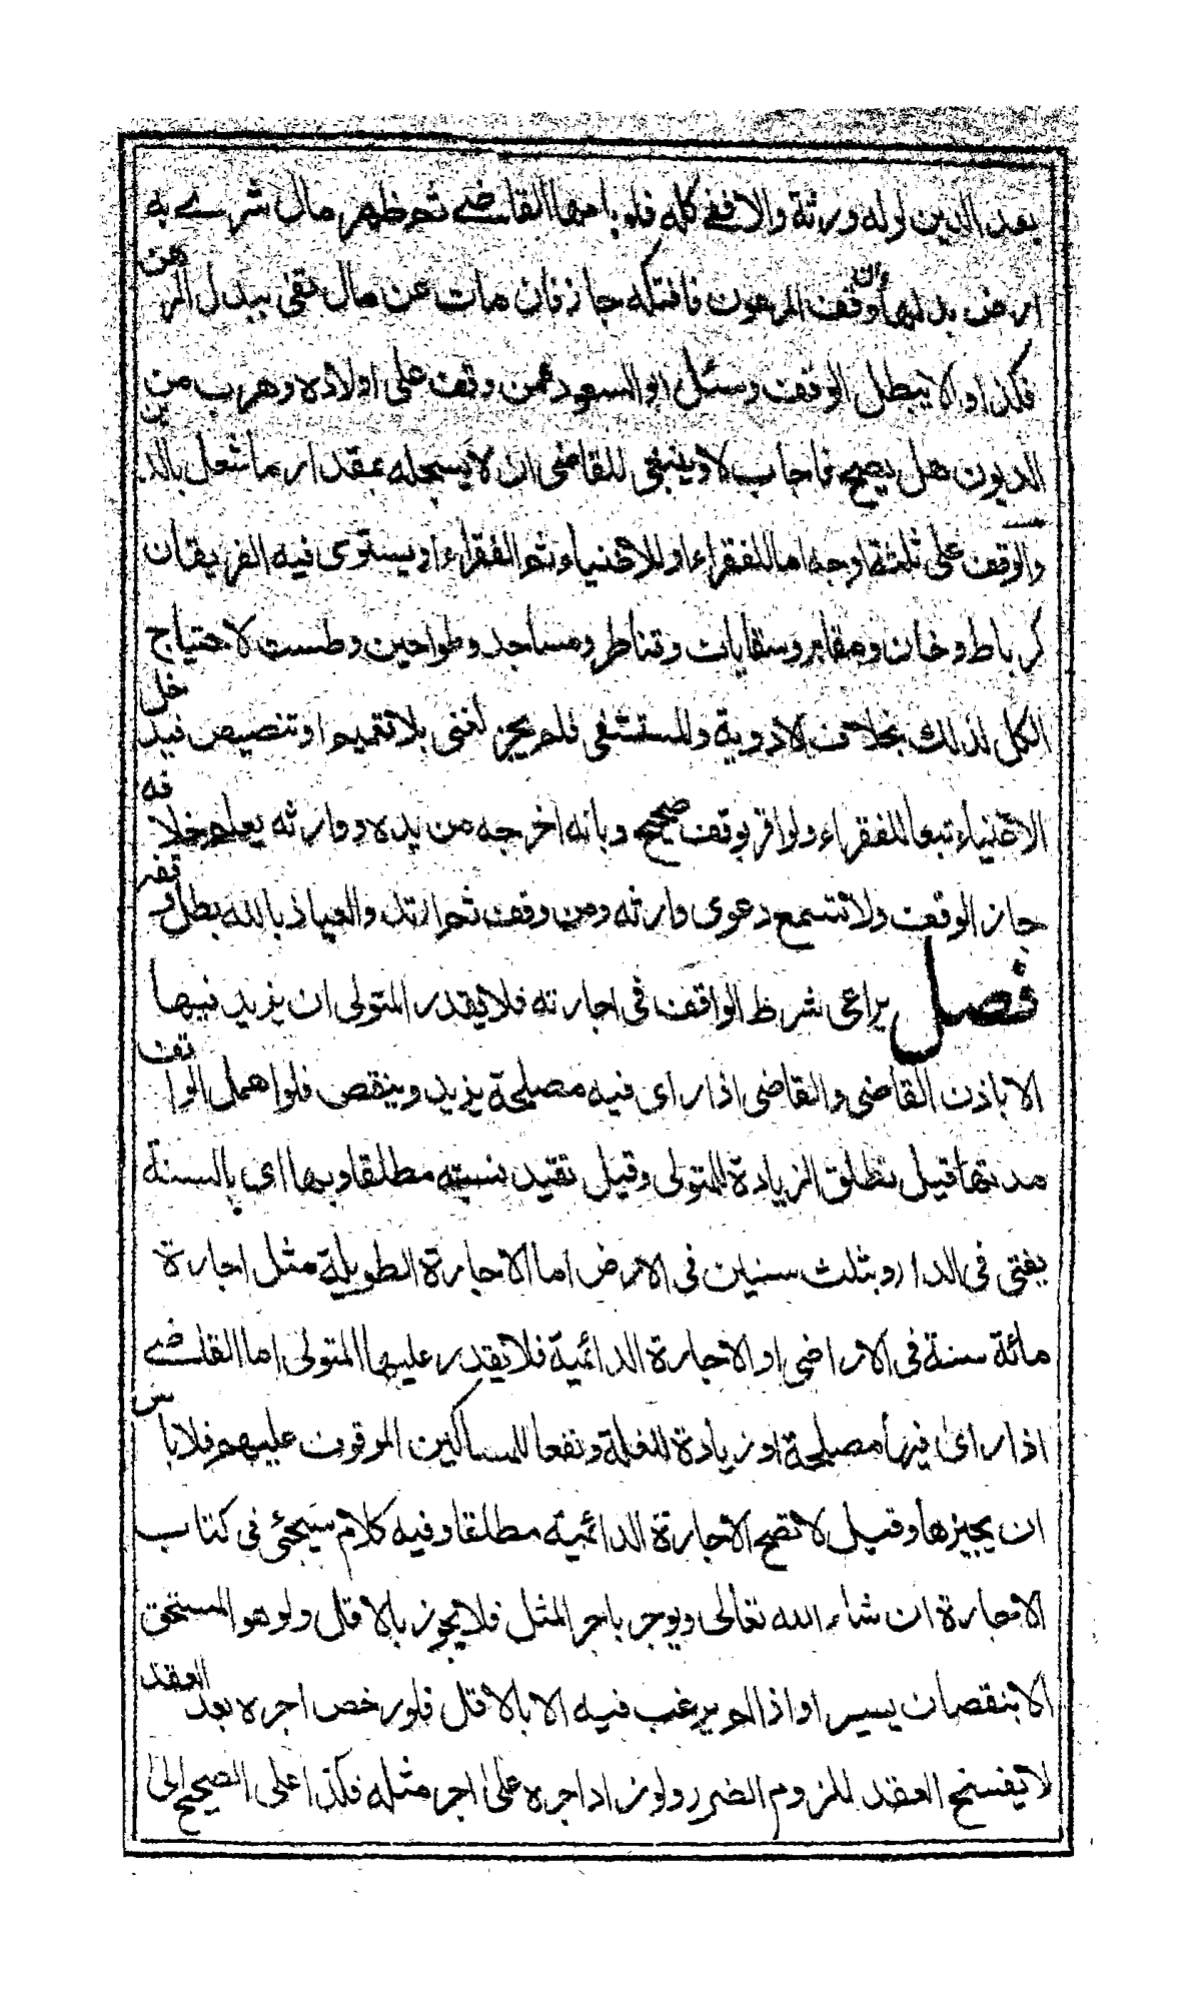 بعد الدين لوله ورثة والا ففي كله فلو باعها القاضي ثم ظهر مال شرے به
ارض بدلها وان وقف المرهون فافتكه جاز فان مات عن مال يفي ببدل الرهن
فكذا والا يبطل الوقف وسئل ابو السعود عمن وقف على اولاده وهرب من
الديون هل يصح فاجاب لا وينبغي للقاضي ان لا يسجله بمقدار ما شغل بالدين
والوقف على ثلثة اوجه اما للفقراء او للاغنياء ثم الفقراء او يستوى فيه الفريقان
كرباط وخان ومقابر وسقايات وقناطر ومساجد وطواحين وطست لاحتياج
الكل لذلك بخلاف الادوية وللمستشفى فلم يجز لغنى بلا تعميم او تنصيص فيدخل
الاغنياء تبعا للفقراء ولو اقر بوقف صحيح وبانه اخرجه من يده ووارثه يعلم خلافه
جاز الوقف ولا تسمع دعوى وارثه ومن وقف ثم ارتد والعياذ بالله بطل وقفه
فصل يراعى شرط الواقف فى اجارته فلا يقدر المتولى ان يزيد فيها
الا باذن القاضى والقاضى اذا راى فيه مصلحة يزيد وينقص فلو اهمل الواقف
مدتها قيل تطلق الزيادة للمتولى وقيل تقيد بسنة مطلقا وبها اى بالسنة
يفتى فى الدار وبثلث سنين فى الارض اما الاجارة الطويلة مثل اجارة
مائة سنة فى الاراضى او الاجارة الدائمية فلا يقدر عليها المتولى اما القاضے
اذا راى فيها مصلحة او زيادة للغلة ونفعا للمساكين الموقوف عليهم فلا باس
ان يجيزها وقيل لا تصح الاجارة الدائمية مطلقا وفيه كلام سيجئ فى كتاب
الاجارة ان شاء الله تعالى ويوجر باجر المثل فلا يجوز بالاقل ولو هو المستحق
الا بنقصان يسير او اذا لم يرغب فيه الا بالاقل فلو رخص اجره بعد العقد
لا يفسخ العقد للزوم الضرر ولو زاد اجره على اجر مثله فكذا على الصحيح الى